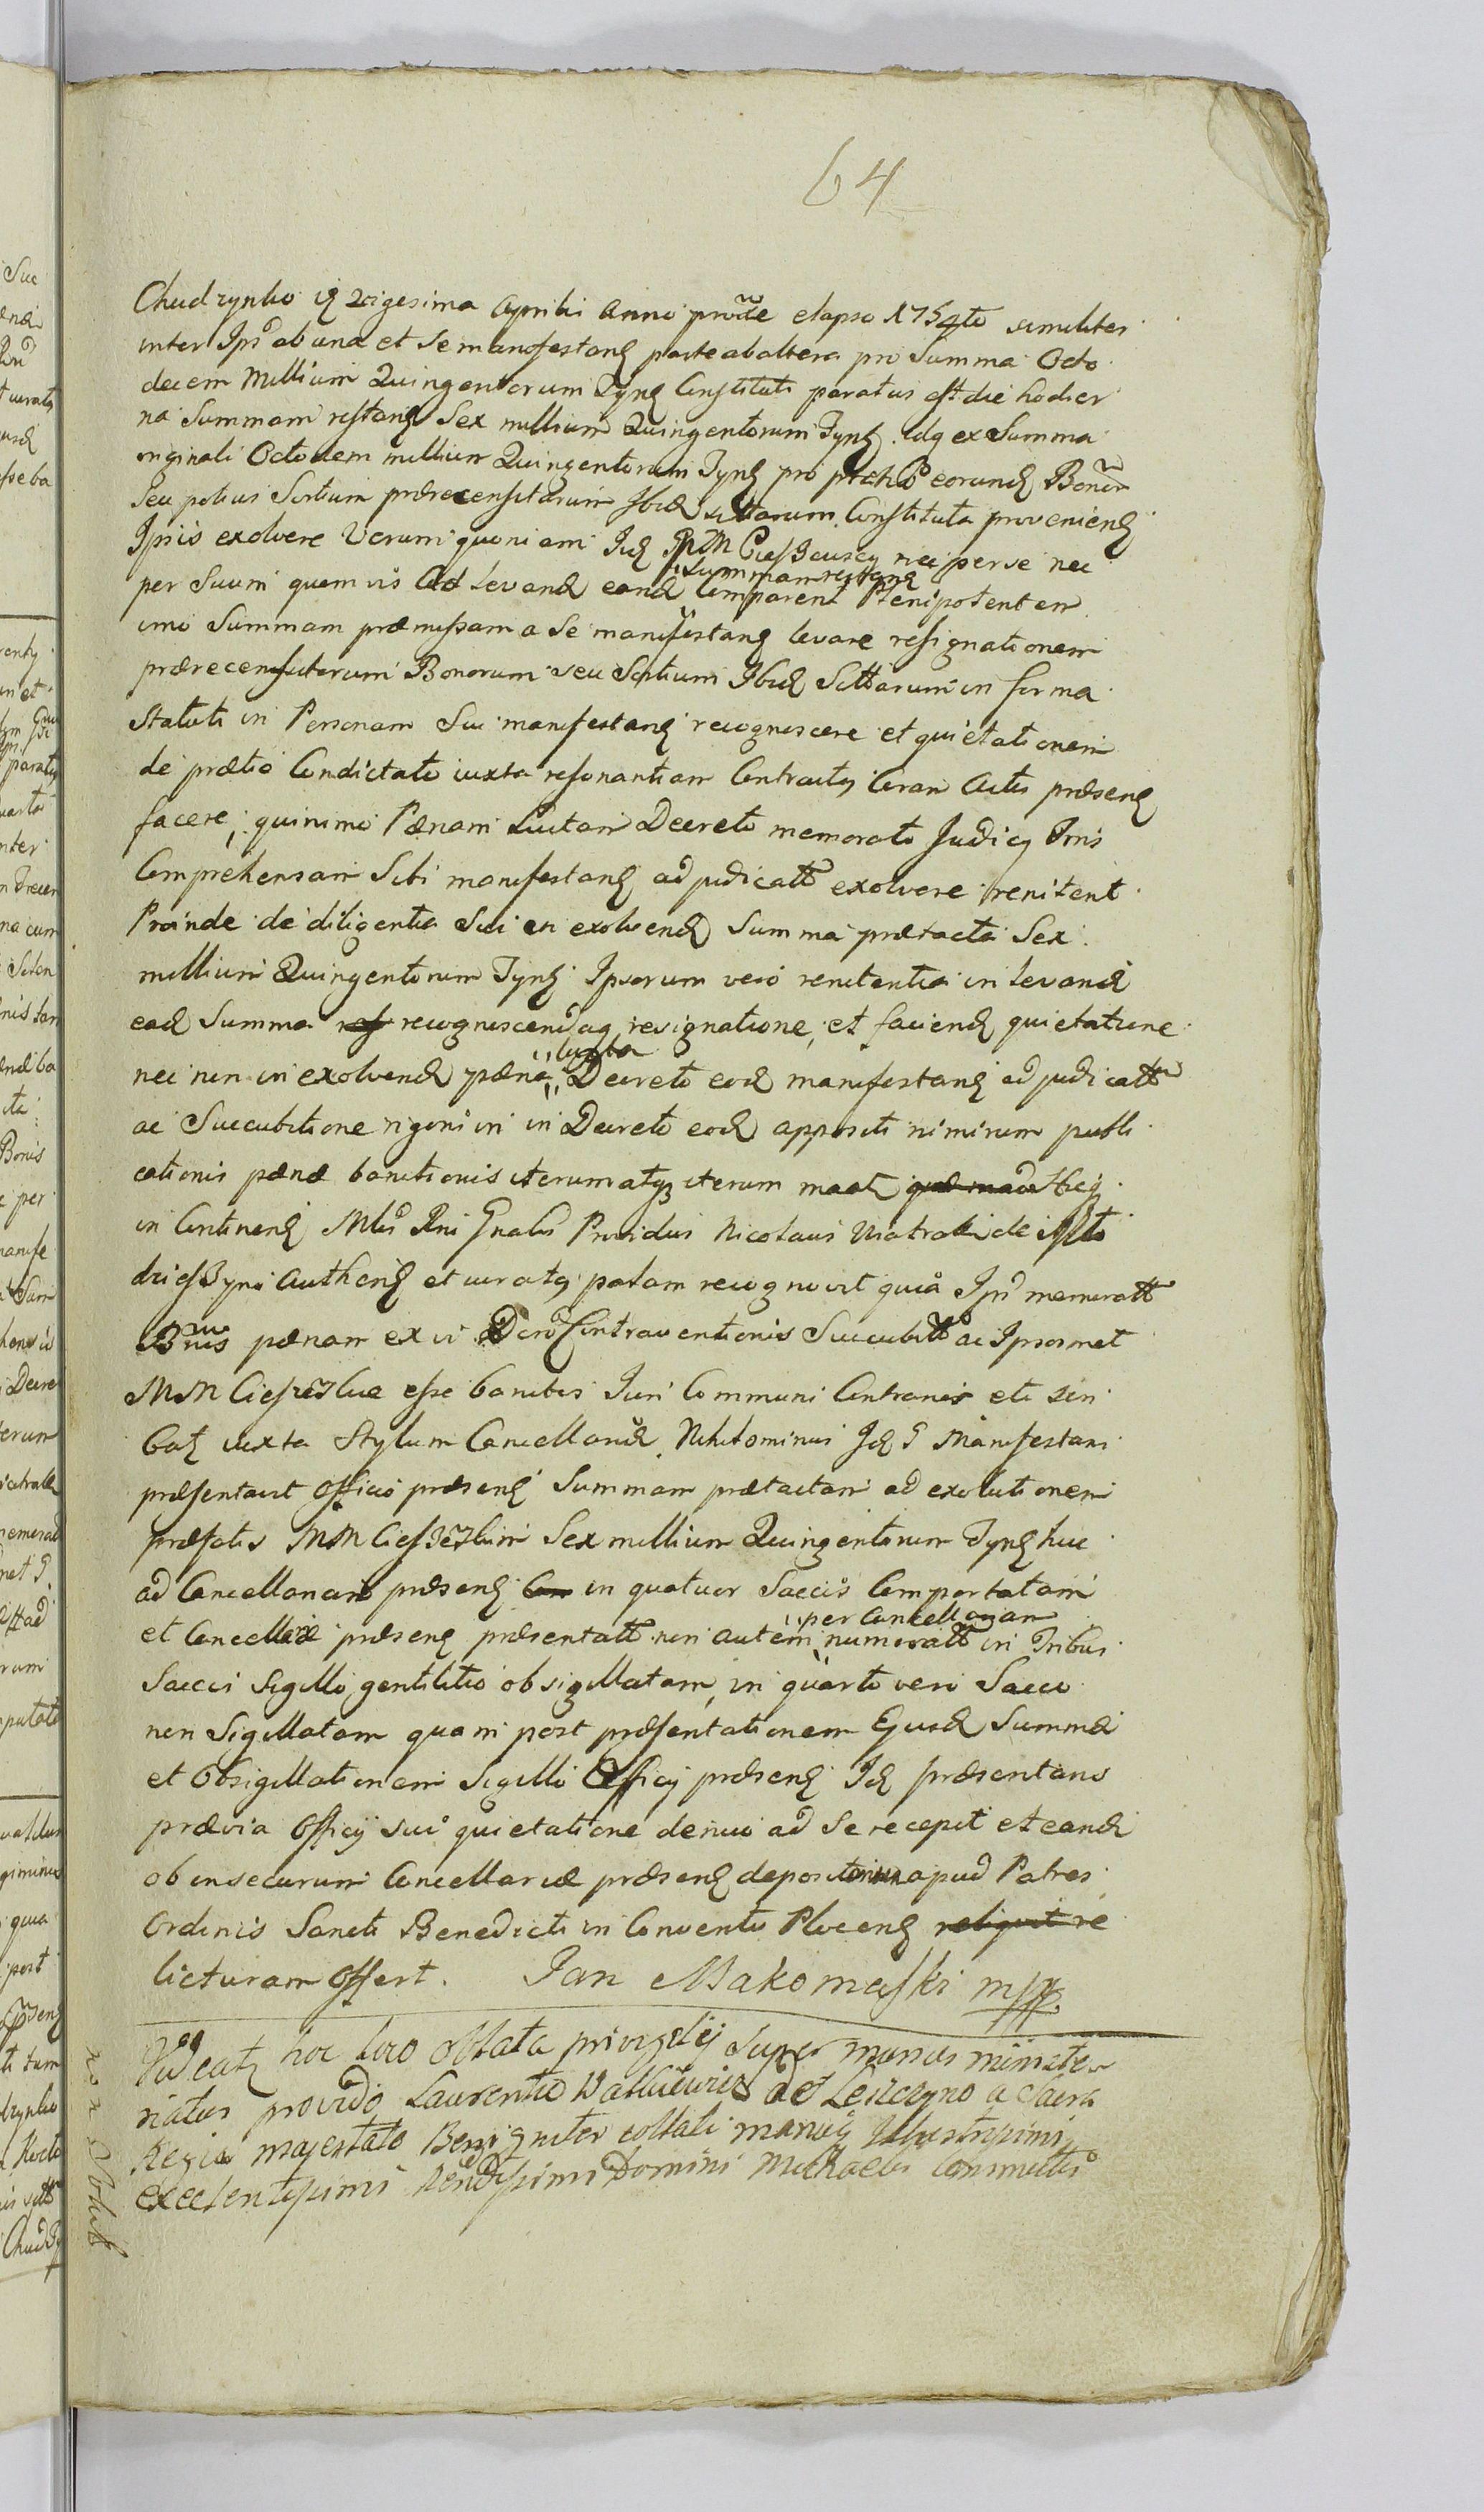 64
Chudzynko i vigesima Aprilis Anni elapso 1754to similiter
inter Ips ab una et Se manifestan parte ab altera pro Summa Octo
decem Millium Quingentorum Tynf Constituti paratus est die hodier
na Summam restan Sex millium Quingentorum Tynf. Idq ex Summa
originali Octodem millium Quingentorum Tynf pro eorund Bonor
Seu potius Sortium prærecensitarum Ibid sittarum Constituta provenien
Ipsis exolvere Verum quoniam nec per se nec
Summam restan
per Suum quemvis Ad Levand eand Comparent Plenipotentem
imo Summam præmissam a Se manifestan levare resignationem
prærecensitorum Bonorum seu Sortium Ibid Sittarum in forma
Statuti in Personam Sui manifestan recognoscere et quietationem
de prætio Condictato iuxta resonantiam Contractus Coram Actis præsen
facere, quinimo Pænam Luitam Decreto memorato Judicij
Comprehensam Sibi manifestan adjudicatt exolvere renitent
Proinde de diligentia Sui in exolvend Summa prætacta Sex
millium Quingentorum Tynf Ipsorum vero renitentia in levand
ead Summa recognoscendaq resignatione, et faciend quietatione
iuxta
nec non in exolvend pæna Decreto eod manifestan adjudicatt
ac Succubitione rigori in Decreto eod appositi nimirum publi
cationis pænæ bannitionis iterum atq iterum
in Continen Providus Nicolaus de
Authen et iuratq palam recognovit quia Ips memoratt
pænam ex vi Contraventionis Succubitt ac Ipsosmet
MM esse banitos Juri Communi Contrario
iuxta Stylum Cancelland. Nihilominus Id G Manifestans
præsentavit Officio præsen Summam prætactam ad exolutionem
præfatis MM Sex millium Quingentorum Tynf huc
ad Cancellariam præsen Com in quatuor Saccis Comportatam
per Cancellariam
et Cancellariæ præsen præsentatt non autem numeratt in Tribus
Saccis Sigillo gentilitio obsigillatam, in quarto vero Sacco
non Sigillatam quam post præsentationem Ejusd Summæ
et Obsigillationem Sigilli Officij præsen Id præsentans
prævia Officij sui quietatione denuo ad Se recepit et eand
ob insecurum Cancellariæ præsen depositorium apud Patres
Ordinis Sancti Benedicti in Conventu Plocen reliquit re
licturam Offert. Jan Makomaski mp
Videatq hoc loco Oblata privilegij super munus ministe
riatus provido Laurentio a Sacra
Regia majestate Benigniter collati manuq Illustrissimi
Excellentissimi Domini Michaelis